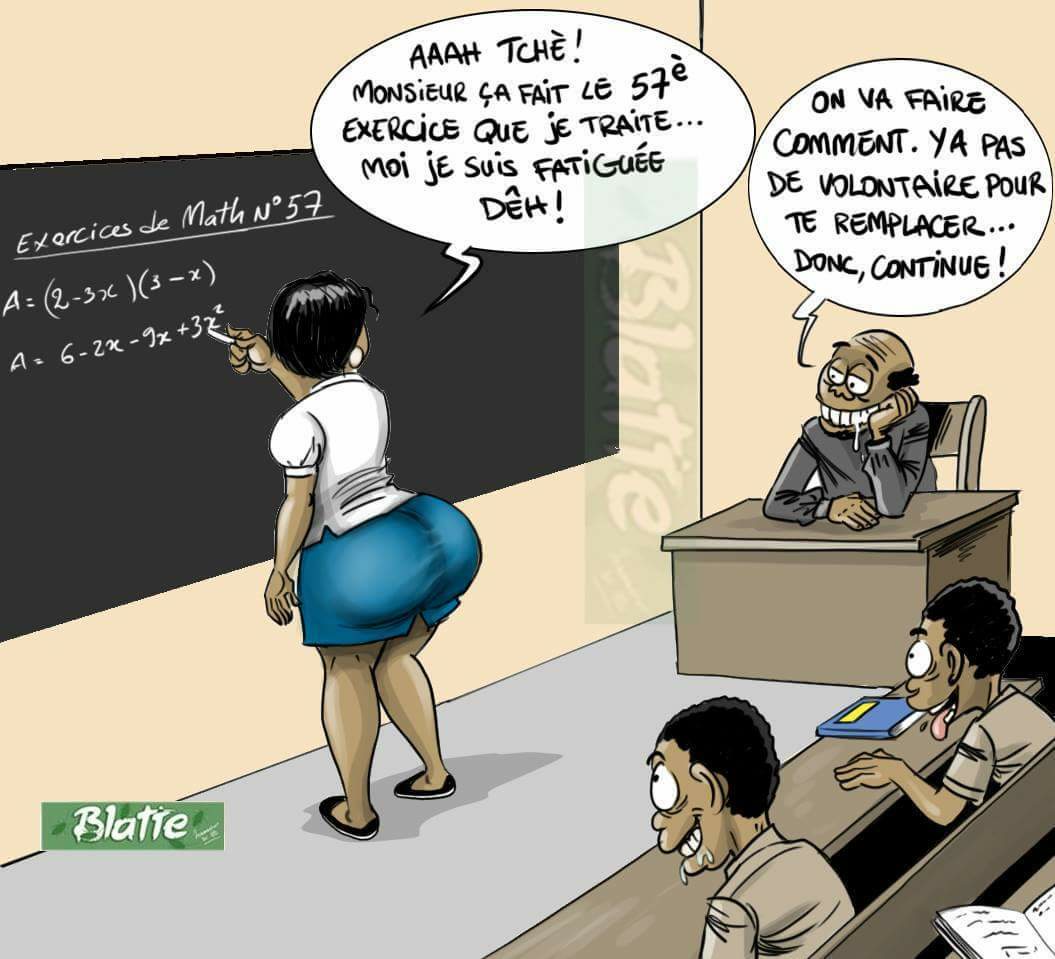 AAAH TCHÈ!
MONSIEUR ÇA FAIT LE 57È
EXERCICE QUE JE TRAITE...
MOI JE SUIS FATIGUÉE
DÊH!
ON VA FAIRE
COMMENT. YA PAS
DE VOLONTAIRE POUR
TE REMPLACER...
DONC, CONTINUE!
Exercices de Math N° 57
A = (2-3x)(3-x)
A = 6-2x-9x+3x²
Blatte
Blatte